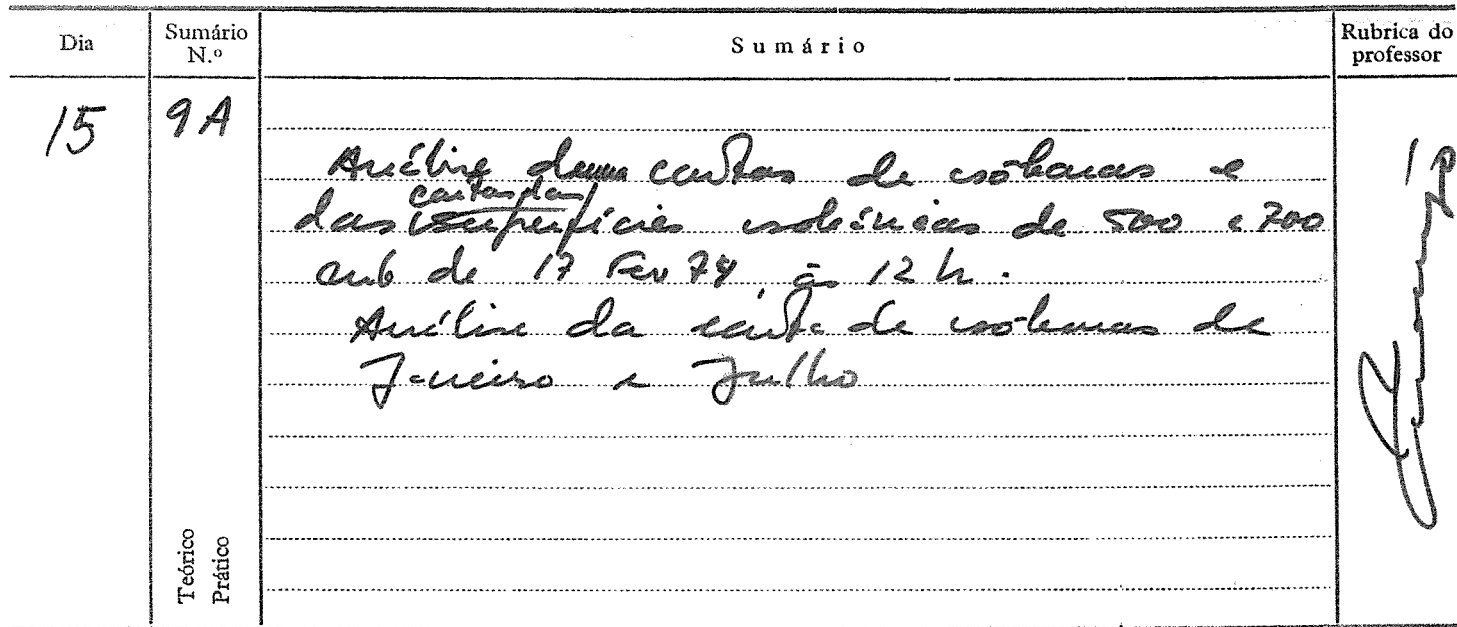 Dia
Sumário N.º
Sumário
Rubrica do professor
15
9A
Análise de cartas de isóbaras e
cartas das
das superfícies isobáricas de 500 e 700
mb de 17 Fev 74, às 12 h.
Análise da carta de isóbaras de
Janeiro e Julho
Teórico
Prático